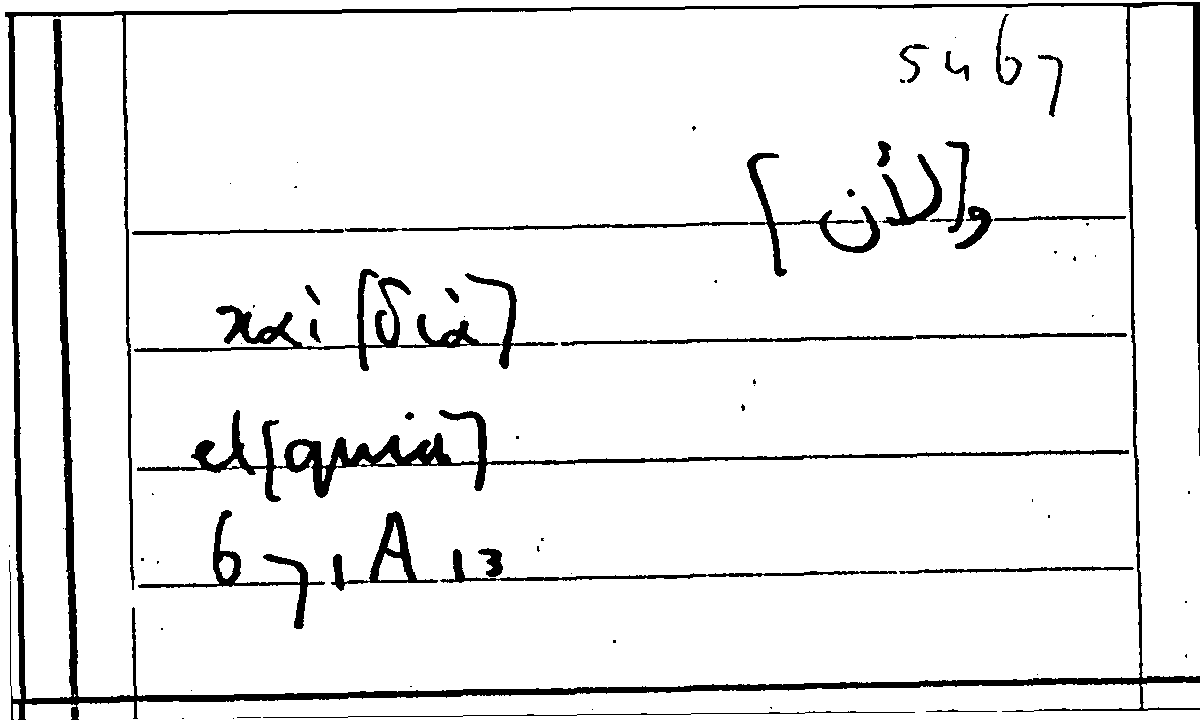 5467
و[لأن]
καὶ [διὰ]
et [quia]
671A13